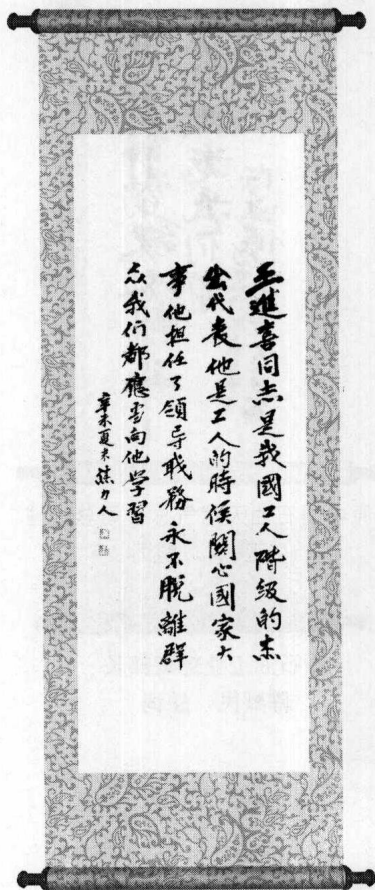 王進喜同志是我國工人階級的杰
出代表他是工人的時侯關心國家大
事他担任了領导职務永不脫離群
众我们都應当向他学習
辛未夏末焦力人